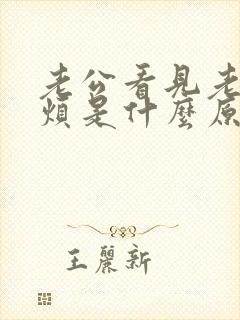 老公看見老
煩是什麼原
王麗新